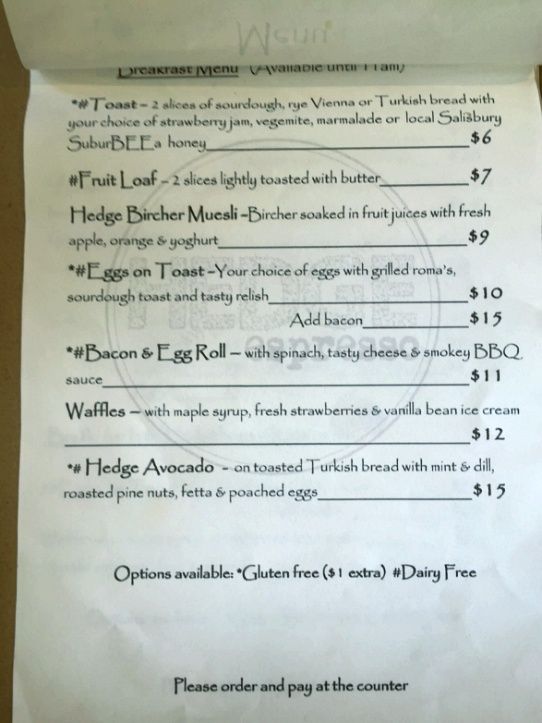 Menu
Breakfast Menu (Available until 11am)
*#Toast – 2 slices of sourdough, rye Vienna or Turkish bread with
your choice of strawberry jam, vegemite, marmalade or local Salisbury
SuburBEEa honey $6
#Fruit Loaf – 2 slices lightly toasted with butter $7
Hedge Bircher Muesli –Bircher soaked in fruit juices with fresh
apple, orange & yoghurt $9
*#Eggs on Toast –Your choice of eggs with grilled roma's,
sourdough toast and tasty relish $10
Add bacon $15
*#Bacon & Egg Roll – with spinach, tasty cheese & smokey BBQ
sauce $11
Waffles – with maple syrup, fresh strawberries & vanilla bean ice cream
$12
*# Hedge Avocado - on toasted Turkish bread with mint & dill,
roasted pine nuts, fetta & poached eggs $15
HEDGE
espresso
Options available: *Gluten free ($1 extra) #Dairy Free
Please order and pay at the counter